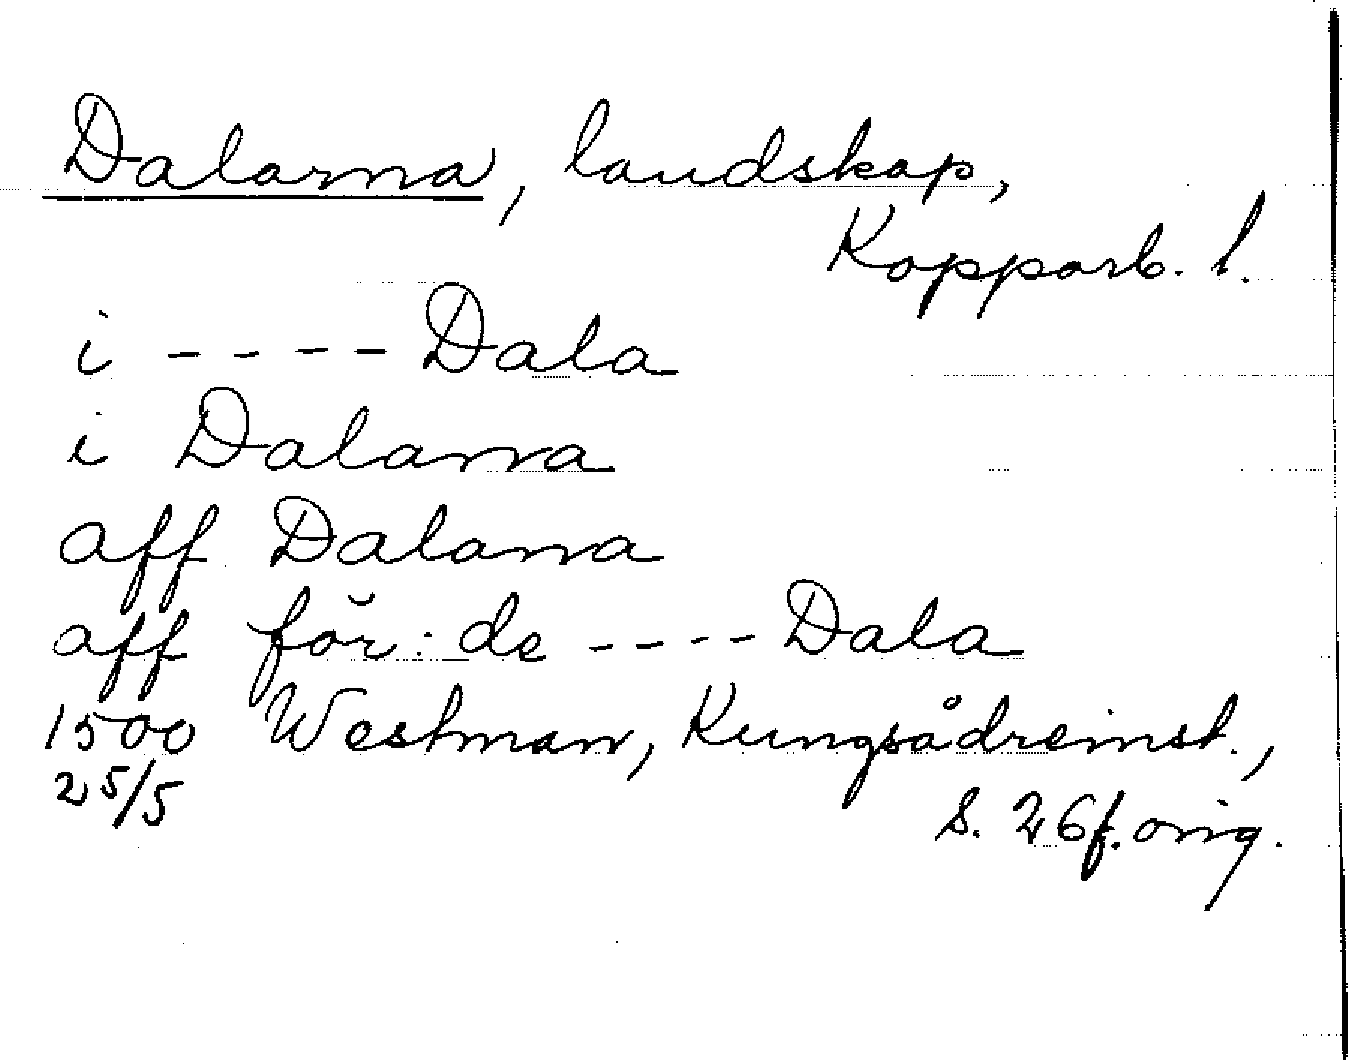 Dalarna, landskap,
Kopparb. l.
i ---- Dala
i Dalarna
aff Dalarna
aff för: de ---- Dala
1500 Westman, Kungsådreinst.,
25/5 s. 26 f. orig.